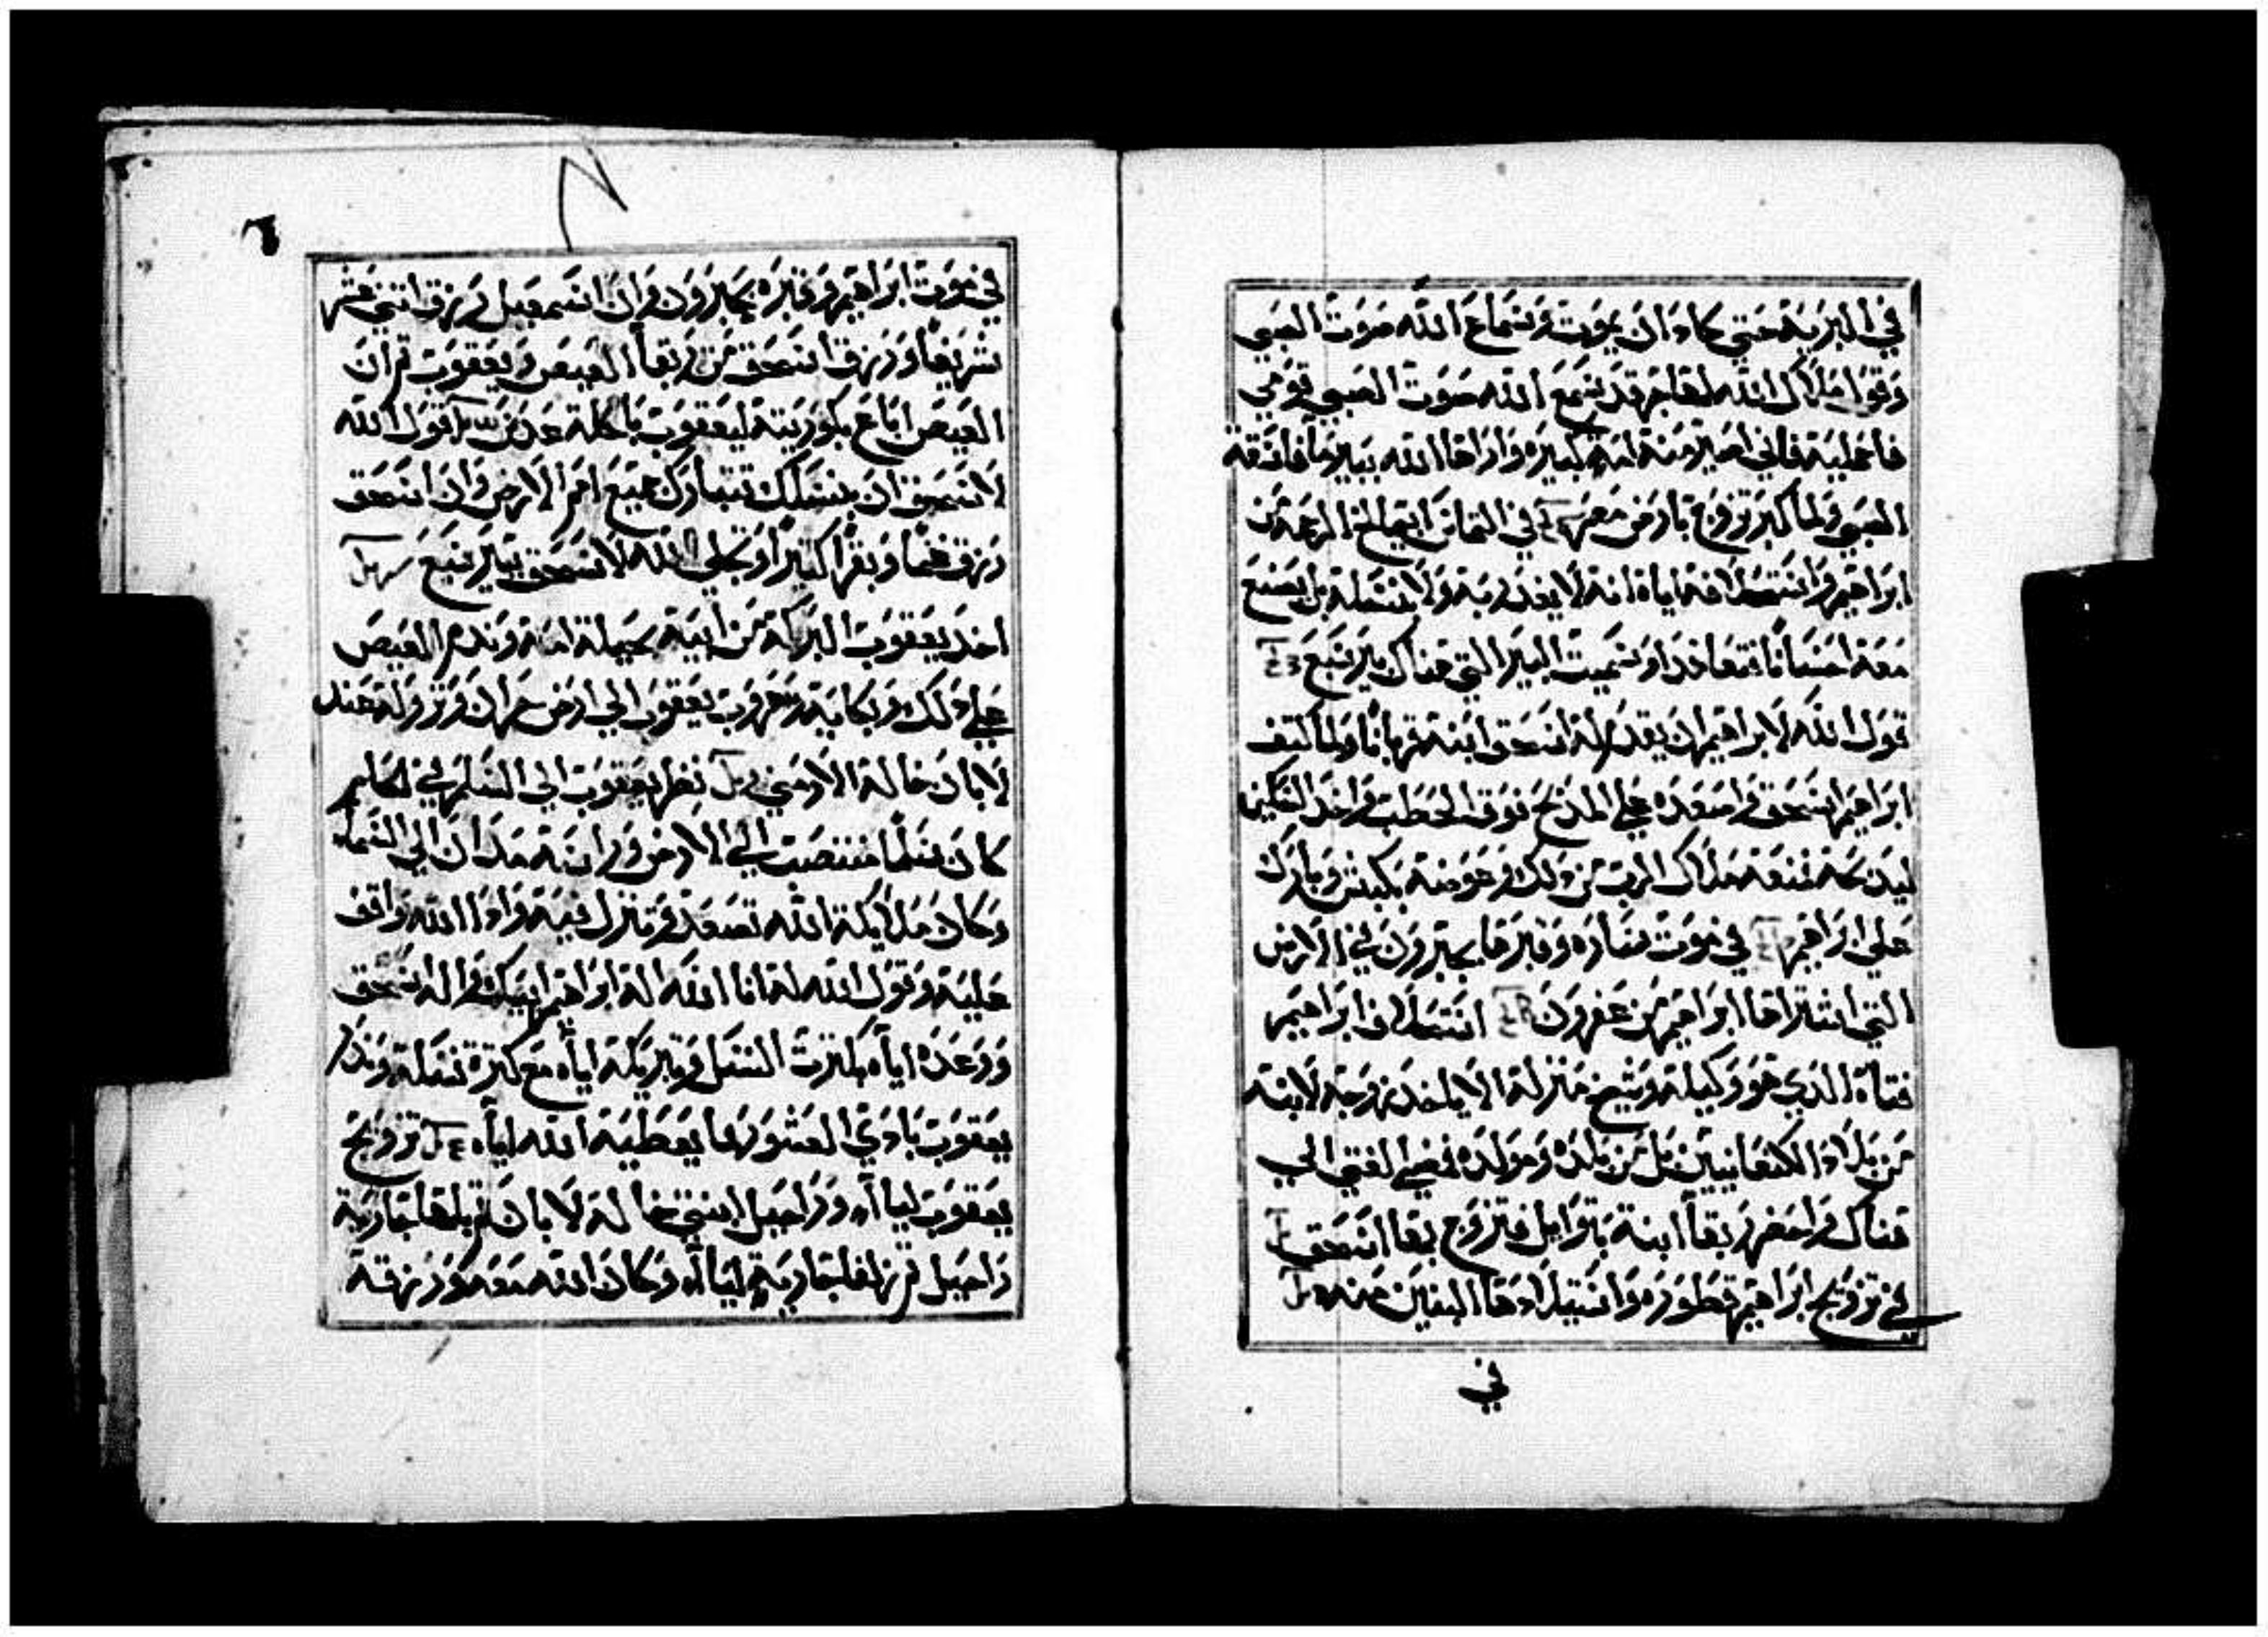 في البرية حتي كاد ان يموت وسماع الله صوت الصبي
وقول ملاك الله لهاجر قد سمع الله صوت الصبي قومي
فاحمليه فاني اصير منه امة كبيره واراها الله بير ما فاسقته
الصبي ولما كبر تزوج بارض مصر في التماس ابيمالخ الرحمة من
ابراهيم واستحلافه اياه انه لا يغدر به ولا بنسله بل يصنع
معه احسانا فتعاهدا وسميت البير التي هناك بير سبع
قول الله لابراهيم ان يقدم له اسحق ابنه قربانا ولما كتف
ابراهيم اسحق واصعده علي المدبح فوق الحطب واخد السكين
ليدبحه فمنعه ملاك الرب من دلك وعوضه بكبش وبارك
علي ابراهيم في موت ساره وقبرها بحبرون في الارض
التي اشتراها ابراهيم من عفرون استحلاف ابراهيم
فتاه الدي هو وكيله وشيخ منزله الا ياخد زوجة لابنه
من بلاد الكنعانيين بل من بلده ومولده فمضي الفتي الي
هناك واحضر ربقا ابنة بتوايل فتزوج بها اسحق
في تزويج ابراهيم قطوره واستيلادها البنين منه
في
٦
في موت ابراهيم وقبره بحبرون وان اسمعيل رزق اتني عشر
شريفا ورزق اسحق من ربقا العيص ويعقوب وان
العيص اباع بكوريته ليعقوب باكلة عدس قول الله
لاسحق ان بنسلك تتبارك جميع امم الارض وان اسحق
رزق غنما وبقرا كتيرا وتجلي الله لاسحق ببير سبع
اخد يعقوب البركة من ابيه بحيلة امه وندم العيص
علي دلك وبكايه وهروب يعقوب الي ارض حران ونزوله عند
لابان خاله الارمني نظر يعقوب الي السلم في المنام
كان سلما منتصب الي الارض وراسه مدان الي السماء
وكان ملايكة الله تصعد وتنزل فيه وادا الله واقف
عليه وقول الله له انا الله اله ابراهيم ابيك واله اسحق
ووعده اياه بكترت النسل وتبريكه اياه مع كترة نسله وندر
يعقوب بادي العشور مما يعطيه الله اياه تزويج
يعقوب لياه وراحيل ابنتي خاله لابان وبلها جارية
راحيل وزلفا جارية لياه وكان الله معه ورزقه